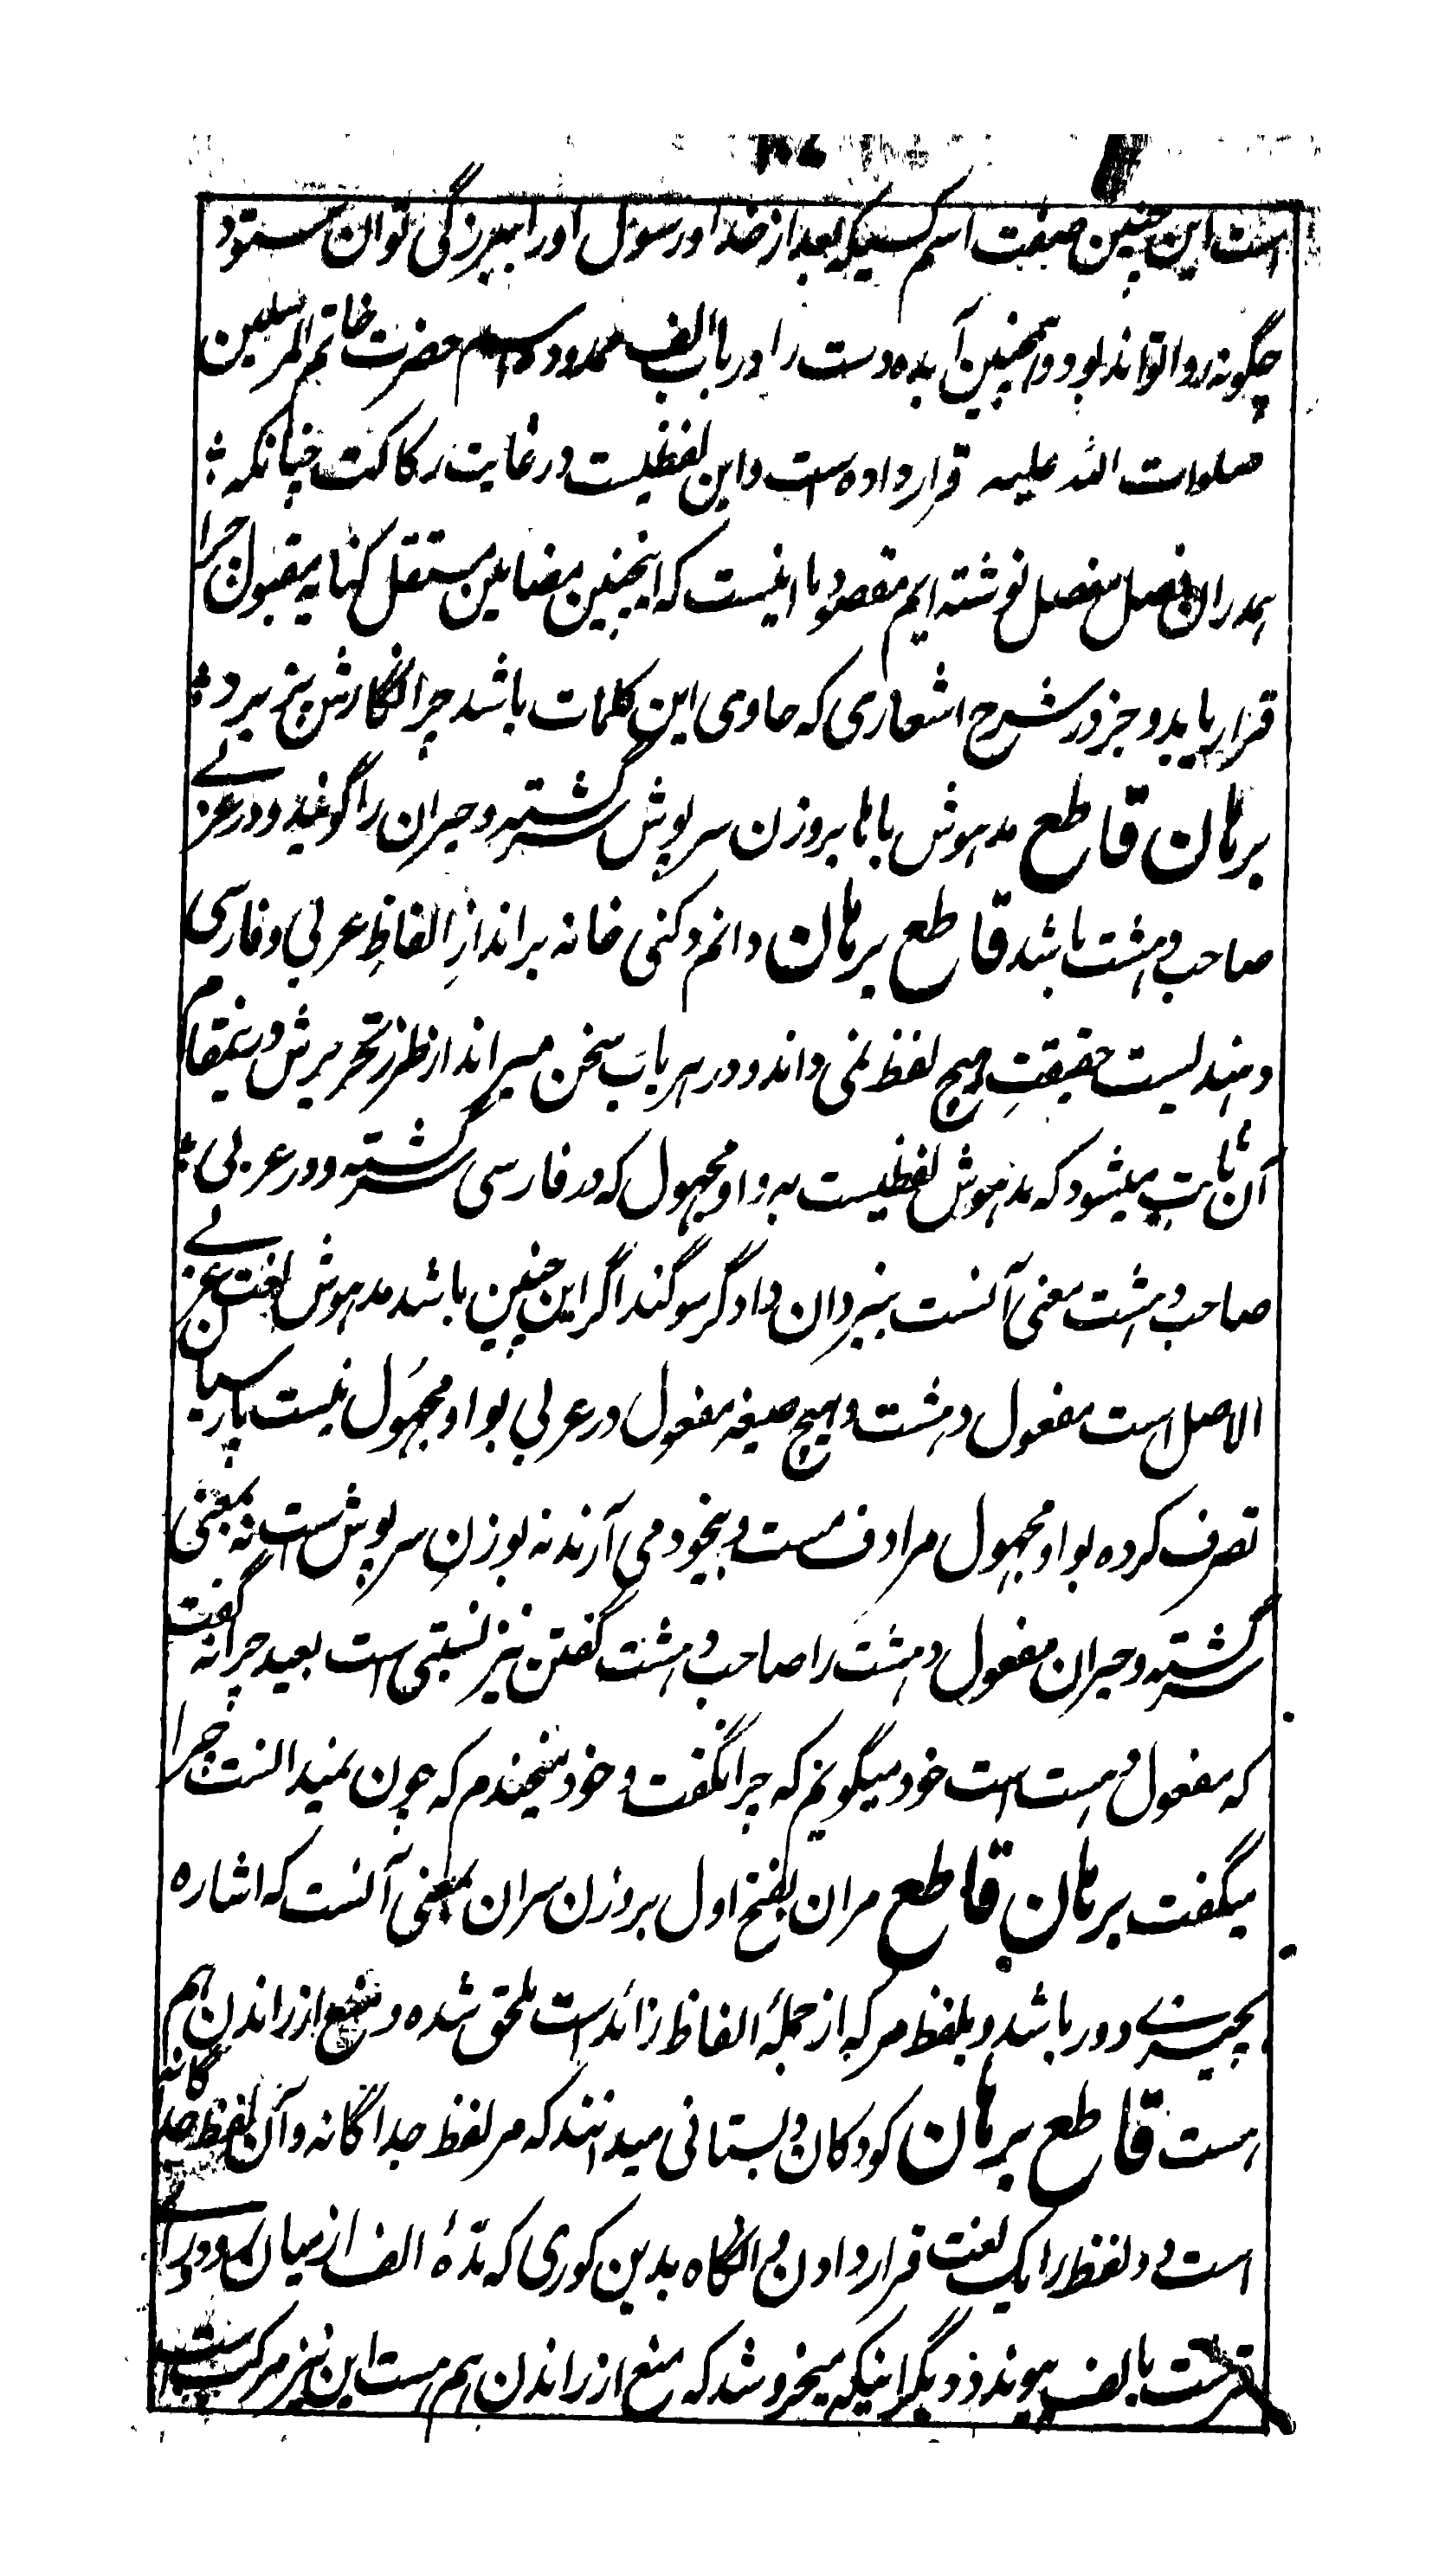 است این چنین صفت اسم کسیکه بعد از خدا و رسول اورا ببزرگی توان ستود
چگونه روا تواند بود و همچنین آبده دست را در باب الف ممدوده اسم حضرت خاتم المرسلین
صلوات الله علیه قرار داده است و این لفظیست در غایت رکاکت چنانکه
همدران فصل مفصل نوشته ایم مقصود ما اینست که اینچنین مضامین مستقل کنایه مقبول چرا
قرار یابد و جز در شرح اشعاری که حاوی این کلمات باشد چرا نگارش پذیرد
برهان قاطع مدهوش باها بروزن سرپوش سرگشته و حیران را گویند و در عربی
صاحب دهشت باشد قاطع برهان دانم دکنی خانه برانداز الفاظِ عربی و فارسی
و هندیست حقیقتِ هیچ لفظ نمی داند و در هر باب سخن میراند از طرز تحریرش درینمقام
آن ثابت میشود که مدهوش لفظیست به واو مجهول که در فارسی سرگشته و در عربی
صاحب دهشت معنی آنست بیزدان دادگر سوگند اگر این چنین باشد مدهوش لغت عربی
الاصل است مفعول دهشت و هیچ صیغه مفعول در عربی بواو مجهول نیست پارسیان
تصرف کرده بواو مجهول مرادف مست و بیخود می آرند نه بوزنِ سرپوش ست نه بمعنی
سرگشته و حیران مفعول دهشت را صاحب دهشت گفتن نیز نسبتی است بعید چرا نه گفت
که مفعول دهست است خود میگویم که چرا نگفت و خود میخندم که چون نمیدانست چرا
میگفت برهان قاطع مران بفتح اول بروزن سران بمعنی آنست که اشاره
بچیزے دور باشد و بلفظ مر که از جملهٔ الفاظ زائد است ملحق شده و منع از راندن هم
هست قاطع برهان کودکان دبستانی میدانند که مر لفظ جداگانه و آن لفظ جداگانه
است دو لفظ را یک لغت قرار دادن و انگاه بدین کوری که مدّهٔ الف از میان رود و رای
قرشت بالف پیوندد دیگر اینکه میخروشد که منع از راندن هم هست این نیز مرکب ست